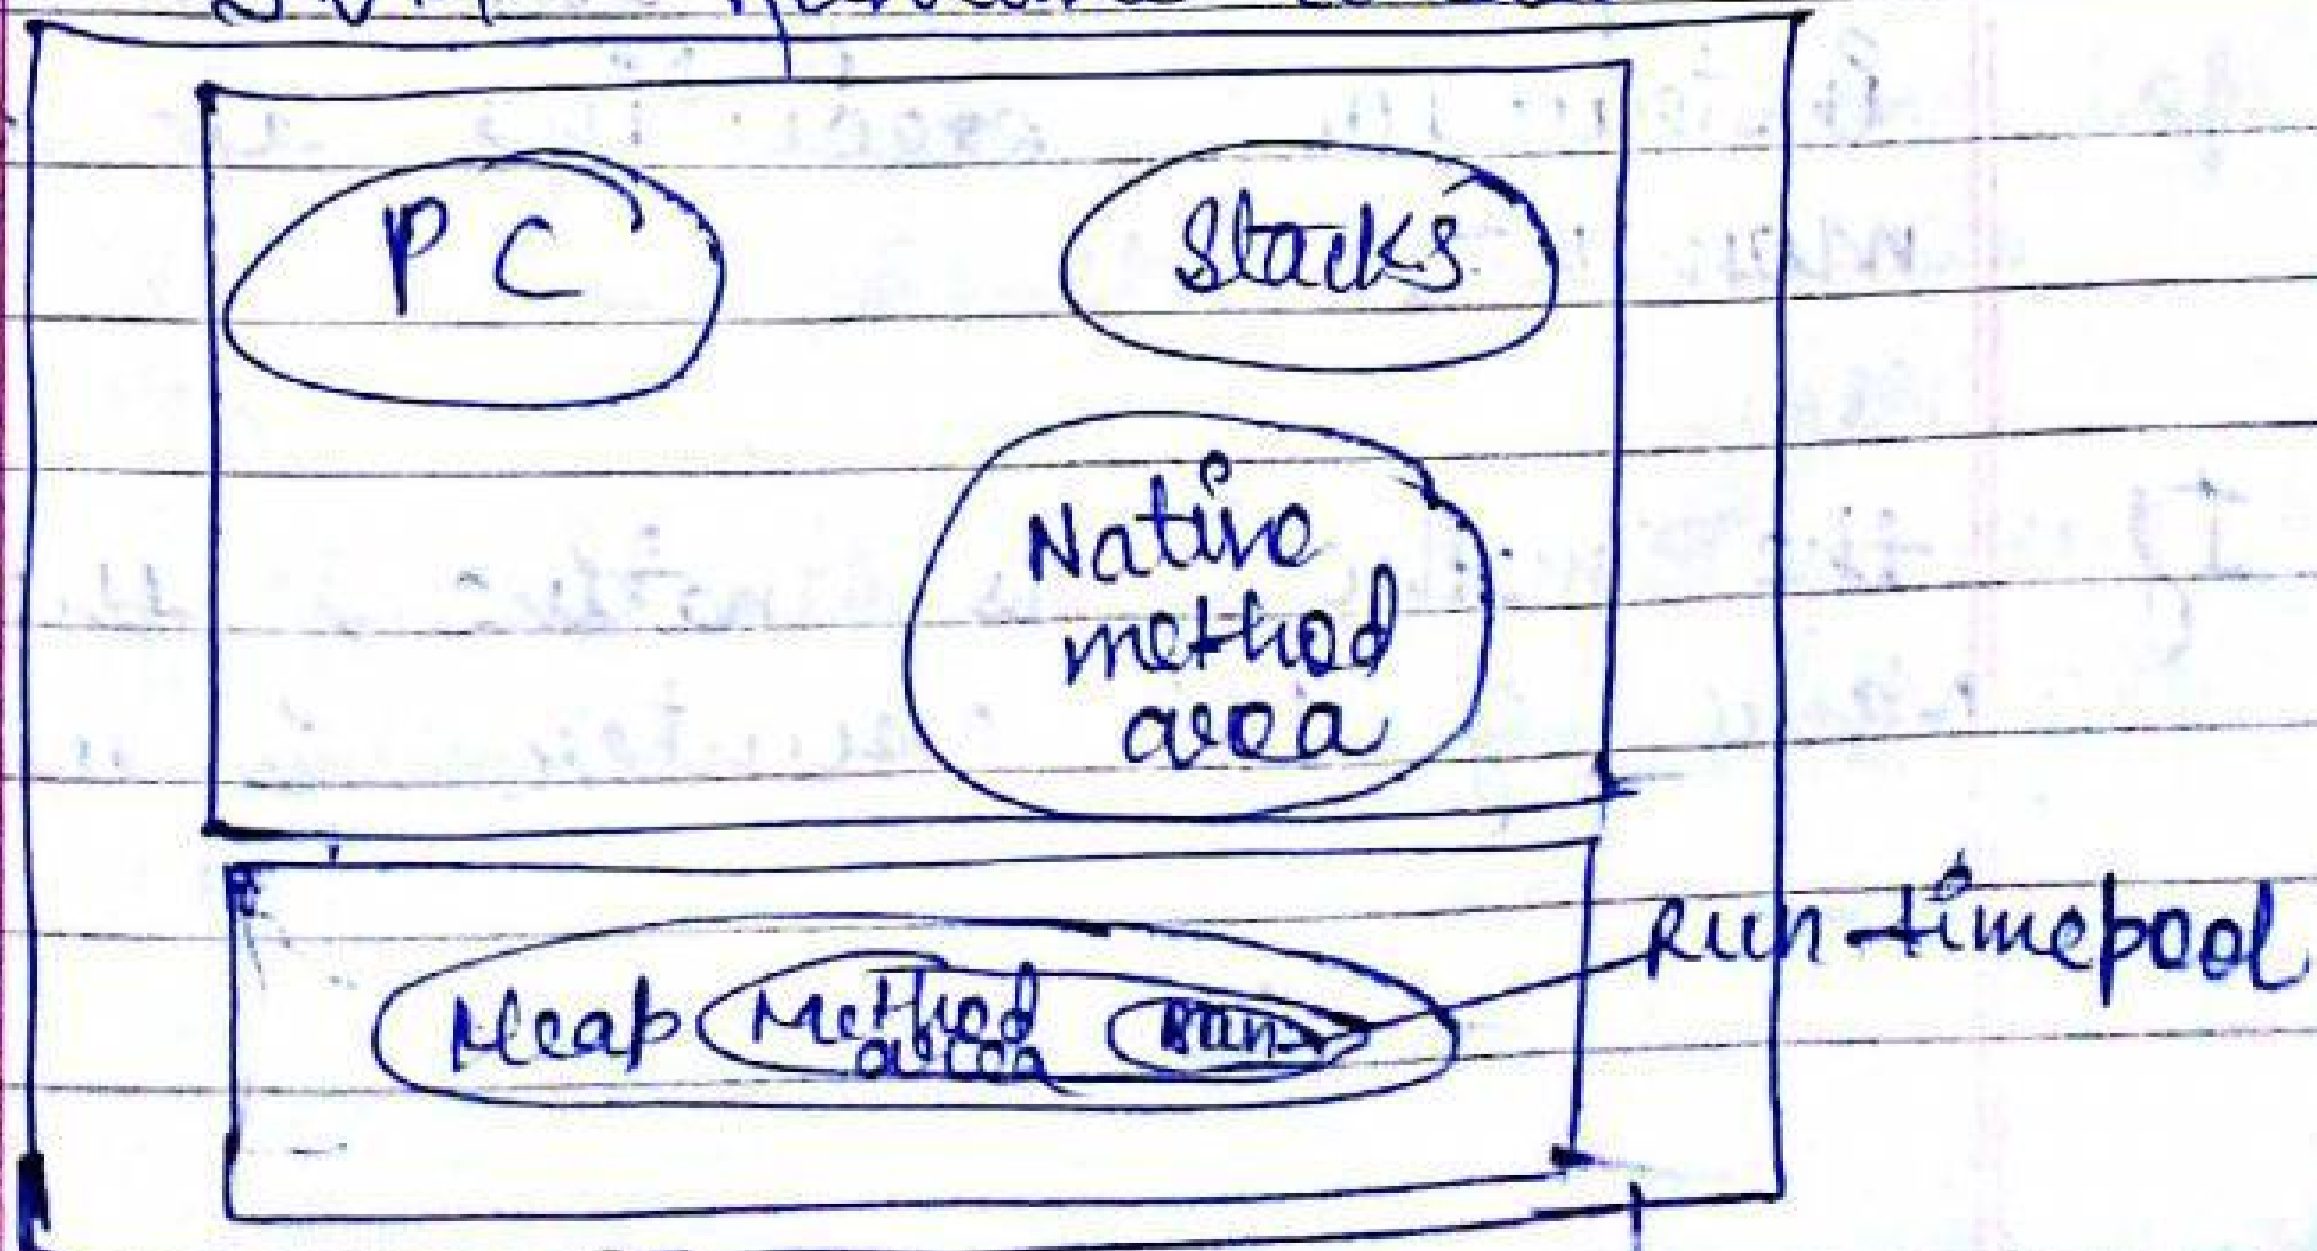 PC
Stacks
Native
method
area
Heap Method
area
Run
Run-timepool